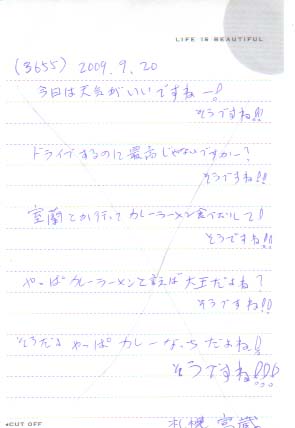 LIFE IS BEAUTIFUL
(3655) 2009.9.20
今日は天気がいいですねー!
そうですね!!
ドライブするのに最高じゃないですかー?
そうですね!!
室蘭とか行ってカレーラーメン食べたりして!
そうですね!!!
やっぱカレーラーメンと言えば大王だよね?
そうですね!!
そうだよ やっぱ カレーなっちだよね!!
そうですね!!!
CUT OFF
札幌 宮蔵